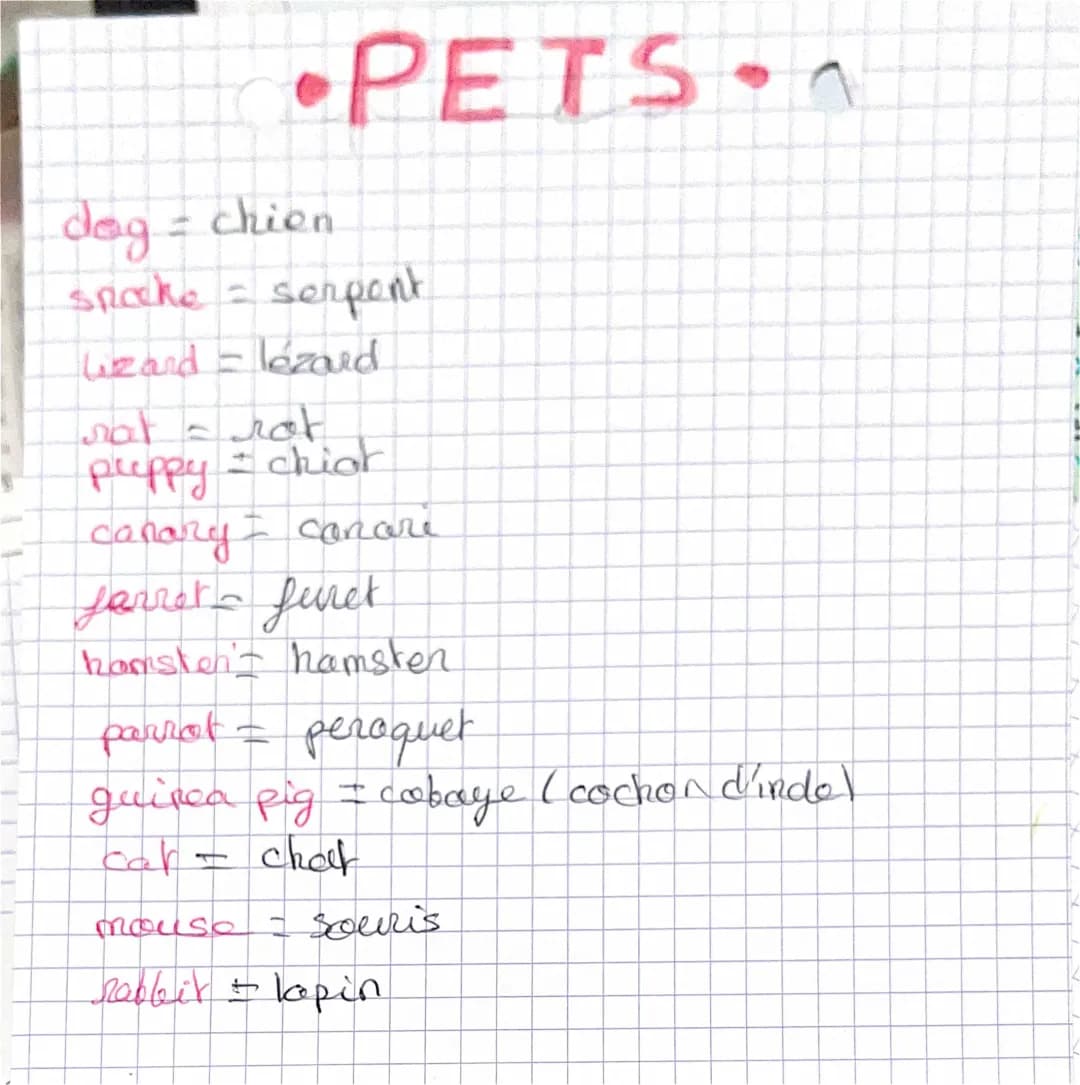 • PETS •
dog = chien
snake = serpent
lizard = lézard
rat = rat
puppy = chiot
canary = canari
ferret = furet
hamster = hamster
parrot = peroquet
guinea pig = cobaye (cochon d'inde)
cat = chat
mouse = souris
rabbit = lapin